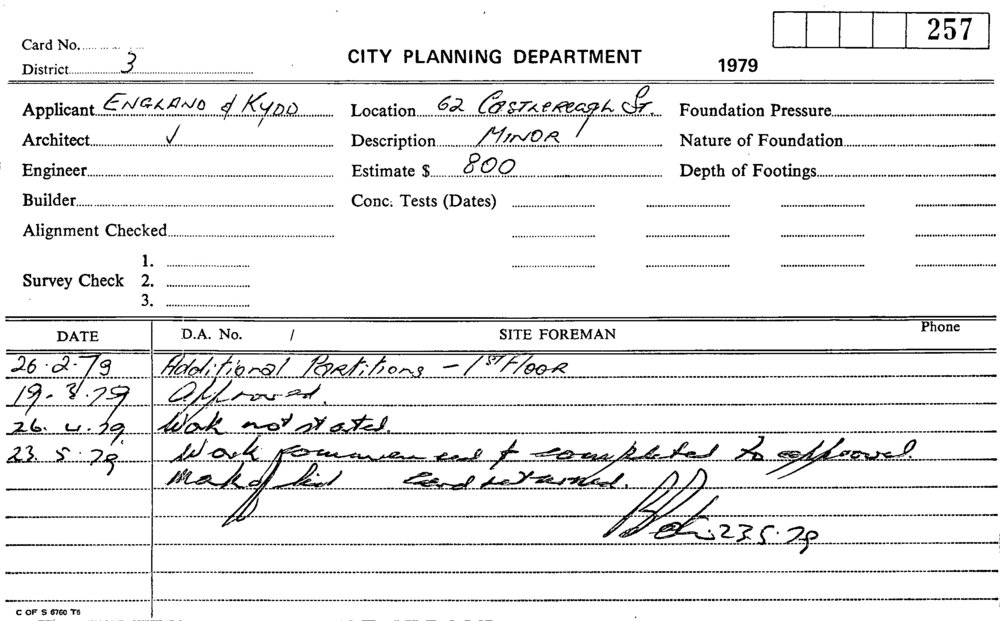 257
Card No.
CITY PLANNING DEPARTMENT 1979
District 3
Applicant ENGLAND & KYDD Location 62 CASTLEREAGH ST. Foundation Pressure
Architect ✓ Description MINOR Nature of Foundation
Engineer Estimate $ 800 Depth of Footings
Builder Conc. Tests (Dates)
Alignment Checked
1.
Survey Check 2.
3.
DATE D.A. No. / SITE FOREMAN Phone
26.2.79 Additional Partitions - 1ST Floor
19.3.79 Approved.
26.4.79 Work not stated.
23.5.79 Work commenced & completed to approval.
Card returned.
23.5.79
C OF S 6760 T6